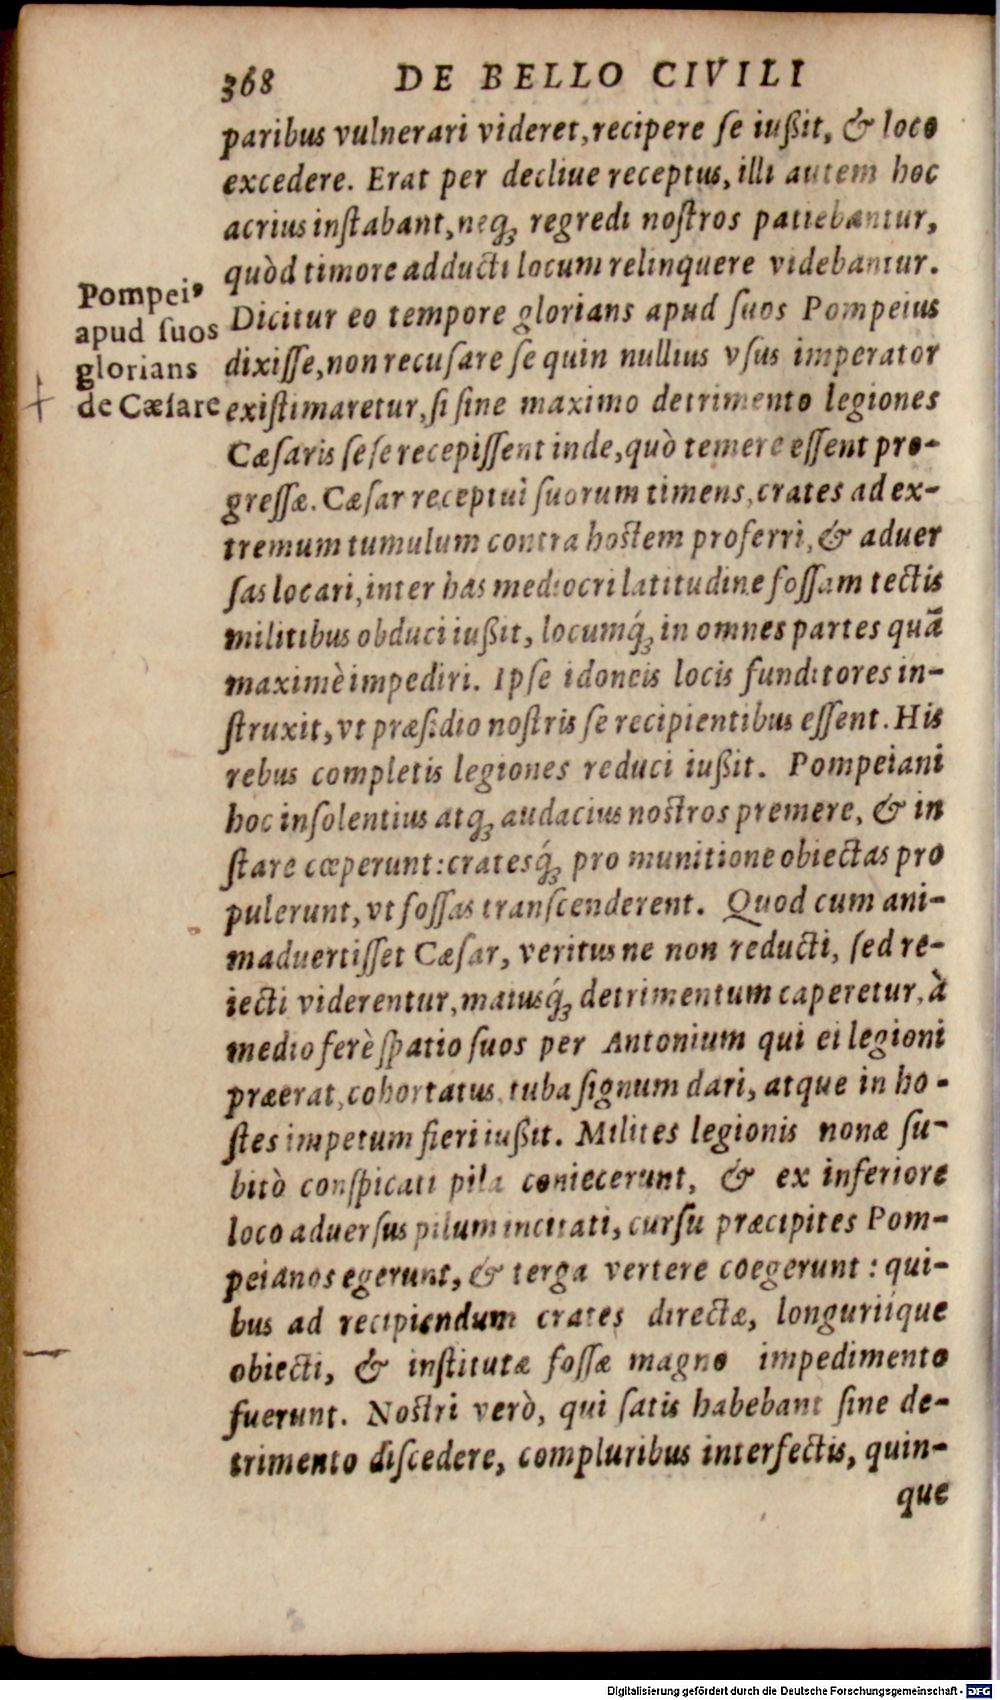 368 DE BELLO CIVILI
paribus vulnerari videret, recipere ſe iußit, & loco
excedere. Erat per decliue receptus, illi autem hoc
acrius inſtabant, neq́ꝫ regredi noſtros patiebantur,
quòd timore adducti locum relinquere videbantur.
Pompei⁹
apud ſuos
glorians
de Cæſare
Dicitur eo tempore glorians apud ſuos Pompeius
dixiſſe, non recuſare ſe quin nullius vſus imperator
exiſtimaretur, ſi ſine maximo detrimento legiones
Cæſaris ſeſe recepiſſent inde, quò temere eſſent pro-
greſſæ. Cæſar receptui ſuorum timens, crates ad ex-
tremum tumulum contra hoſtem proferri, & aduer
ſas locari, inter has mediocri latitudine foſſam tectis
militibus obduci iußit, locumq́ꝫ in omnes partes quã
maximè impediri. Ipſe idoneis locis funditores in-
ſtruxit, vt præſidio noſtris ſe recipientibus eſſent. His
rebus completis legiones reduci iußit. Pompeiani
hoc inſolentius atqꝫ audacius noſtros premere, & in
ſtare cœperunt: cratesq́ꝫ pro munitione obiectas pro
pulerunt, vt foſſas tranſcenderent. Quod cum ani-
maduertiſſet Cæſar, veritus ne non reducti, ſed re-
iecti viderentur, maiusq́ꝫ detrimentum caperetur, à
medio ferè ſpatio ſuos per Antonium qui ei legioni
præerat, cohortatus, tuba ſignum dari, atque in ho-
ſtes impetum fieri iußit. Milites legionis nonæ ſu-
bitò conſpicati pila coniecerunt, & ex inferiore
loco aduerſus pilum incitati, curſu præcipites Pom-
peianos egerunt, & terga vertere coegerunt: qui-
bus ad recipiendum crates directæ, longuriíque
obiecti, & inſtitutæ foſſæ magno impedimento
fuerunt. Noſtri verò, qui ſatis habebant ſine de-
trimento diſcedere, compluribus interfectis, quin-
que
Digitalisierung gefördert durch die Deutsche Forschungsgemeinschaft - DFG